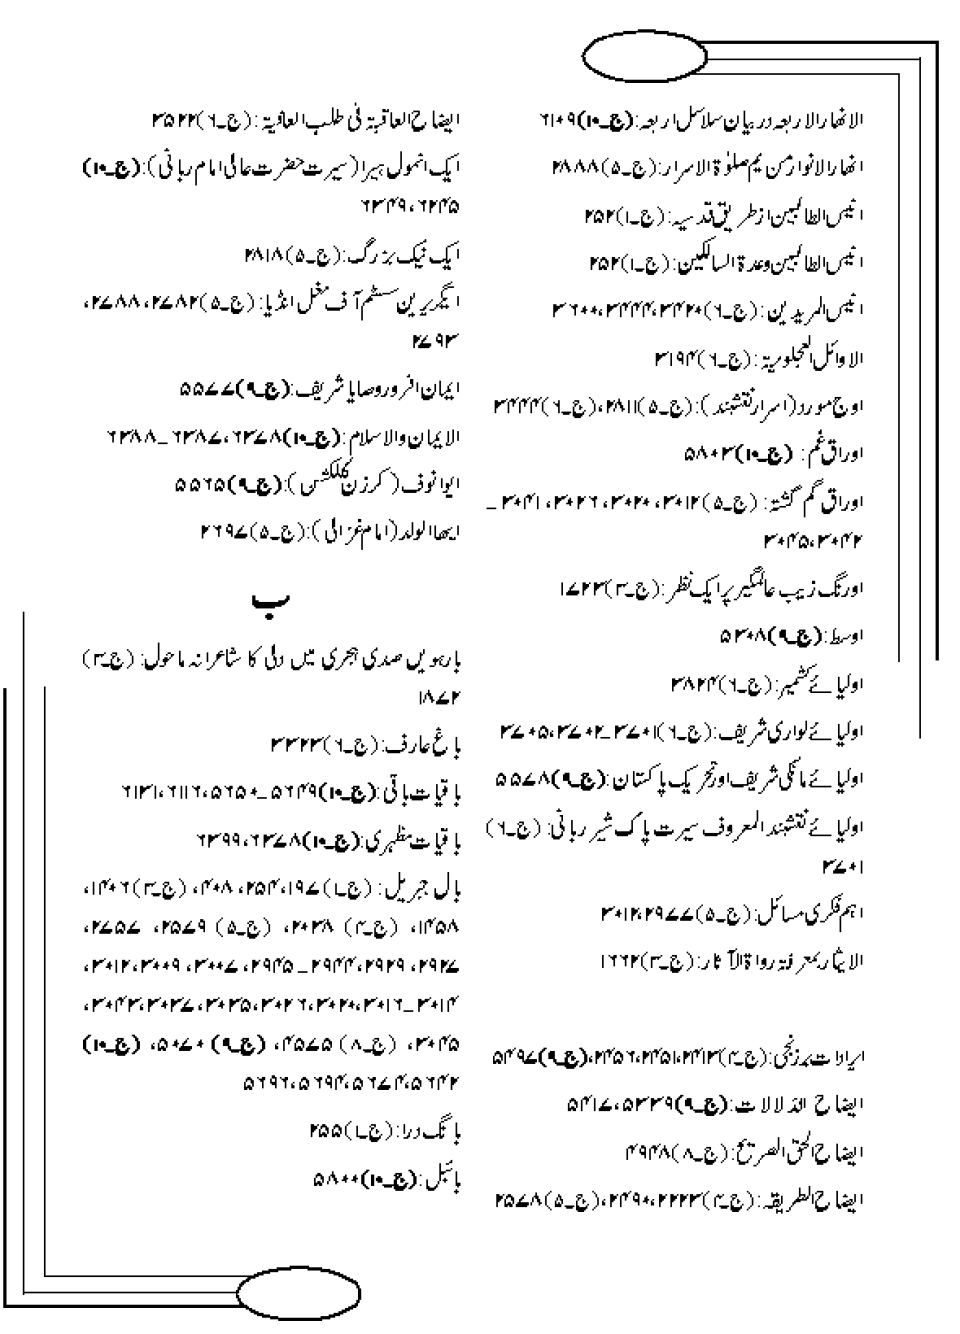 الانھار الاربعہ در بیان سلاسل اربعہ: (ج۔۱۰)۶۱۰۹
انھار الانوار من یم صلوٰۃ الاسرار: (ج۔۵)۲۸۸۸
انیس الطالبین از طریق قدسیہ: (ج۔۱)۲۵۲
انیس الطالبین وعدۃ السالکین: (ج۔۱)۲۵۲
انیس المریدین: (ج۔۶)۳۴۲۰،۳۴۴۴،۳۶۰۰
الاوائل العجلونیۃ: (ج۔۶)۳۱۹۴
اوج مورد (اسرار نقشبند): (ج۔۵)۲۸۱۱، (ج۔۶)۳۴۴۴
اوراق غم: (ج۔۱۰)۵۸۰۳
اوراق گم گشتہ: (ج۔۵)۳۰۱۲، ۳۰۲۰، ۳۰۲۶، ۳۰۴۱ـ
۳۰۴۲،۳۰۴۵
اورنگ زیب عالمگیر پر ایک نظر: (ج۔۳)۱۷۲۳
اوسط: (ج۔۹)۵۳۰۸
اولیائے کشمیر: (ج۔۶)۳۸۲۴
اولیائے لواری شریف: (ج۔۶)۳۷۰۱ـ۳۷۰۲،۳۷۰۵
اولیائے مانکی شریف اور تحریک پاکستان: (ج۔۹)۵۵۷۸
اولیائے نقشبند المعروف سیرت پاک شیر ربانی: (ج۔۶)
۳۷۰۱
اہم فکری مسائل: (ج۔۵)۲۹۷۷،۳۰۱۲
الایثار بمعرفۃ رواۃ الآثار: (ج۔۳)۱۶۶۲
ایرادات برزنجی: (ج۔۴)۲۴۱۳،۲۴۵۱،۲۴۵۶، (ج۔۹)۵۴۹۷
ایضاح الدلالات: (ج۔۹)۵۳۳۹،۵۴۱۷
ایضاح الحق الصریح: (ج۔۸)۴۹۴۸
ایضاح الطریقہ: (ج۔۴)۲۲۲۳،۲۴۹۰، (ج۔۵)۲۵۷۸
ایضاح العاقبۃ فی طلب العافیۃ: (ج۔۶)۳۵۲۲
ایک انمول ہیرا (سیرت حضرت عالی امام ربانی): (ج۔۱۰)
۶۲۴۵، ۶۳۴۹
ایک نیک بزرگ: (ج۔۵)۲۸۱۸
ایگریرین سسٹم آف مغل انڈیا: (ج۔۵)۲۷۸۲، ۲۷۸۸،
۲۷۹۳
ایمان افروز وصایا شریف: (ج۔۹)۵۵۷۷
الایمان والاسلام: (ج۔۱۰)۶۳۷۸، ۶۳۸۷ـ ۶۳۸۸
ایوانوف (کرزن کلکشن): (ج۔۹)۵۵۶۵
ایھا الولد (امام غزالی): (ج۔۵)۲۶۹۷
ب
بارہویں صدی ہجری میں دلی کا شاعرانہ ماحول: (ج۔۳)
۱۸۷۲
باغ عارف: (ج۔۶)۳۳۲۳
باقیات باقی: (ج۔۱۰)۵۶۴۹ـ۵۶۵۰، ۶۱۱۶، ۶۱۳۱
باقیات مظہری: (ج۔۱۰)۶۳۷۸، ۶۳۹۹
بال جبریل: (ج۔۱)۱۹۷، ۲۵۴، ۴۰۸، (ج۔۳)۱۴۰۶،
۱۴۵۸، (ج۔۴)۲۰۳۸، (ج۔۵) ۲۵۷۹، ۲۷۵۷،
۲۹۲۷، ۲۹۲۹، ۲۹۴۴ـ ۲۹۴۵، ۳۰۰۷، ۳۰۰۹، ۳۰۱۲،
۳۰۱۴ـ۳۰۱۶، ۳۰۲۰، ۳۰۲۶، ۳۰۳۵، ۳۰۳۷، ۳۰۴۳،
۳۰۴۵، (ج۔۸) ۴۵۷۵، (ج۔۹) ۵۰۷۰، (ج۔۱۰)
۵۶۴۲، ۵۶۷۴، ۵۶۹۴، ۵۶۹۶
بانگ درا: (ج۔۱)۲۵۵
بائبل: (ج۔۱۰)۵۸۰۰